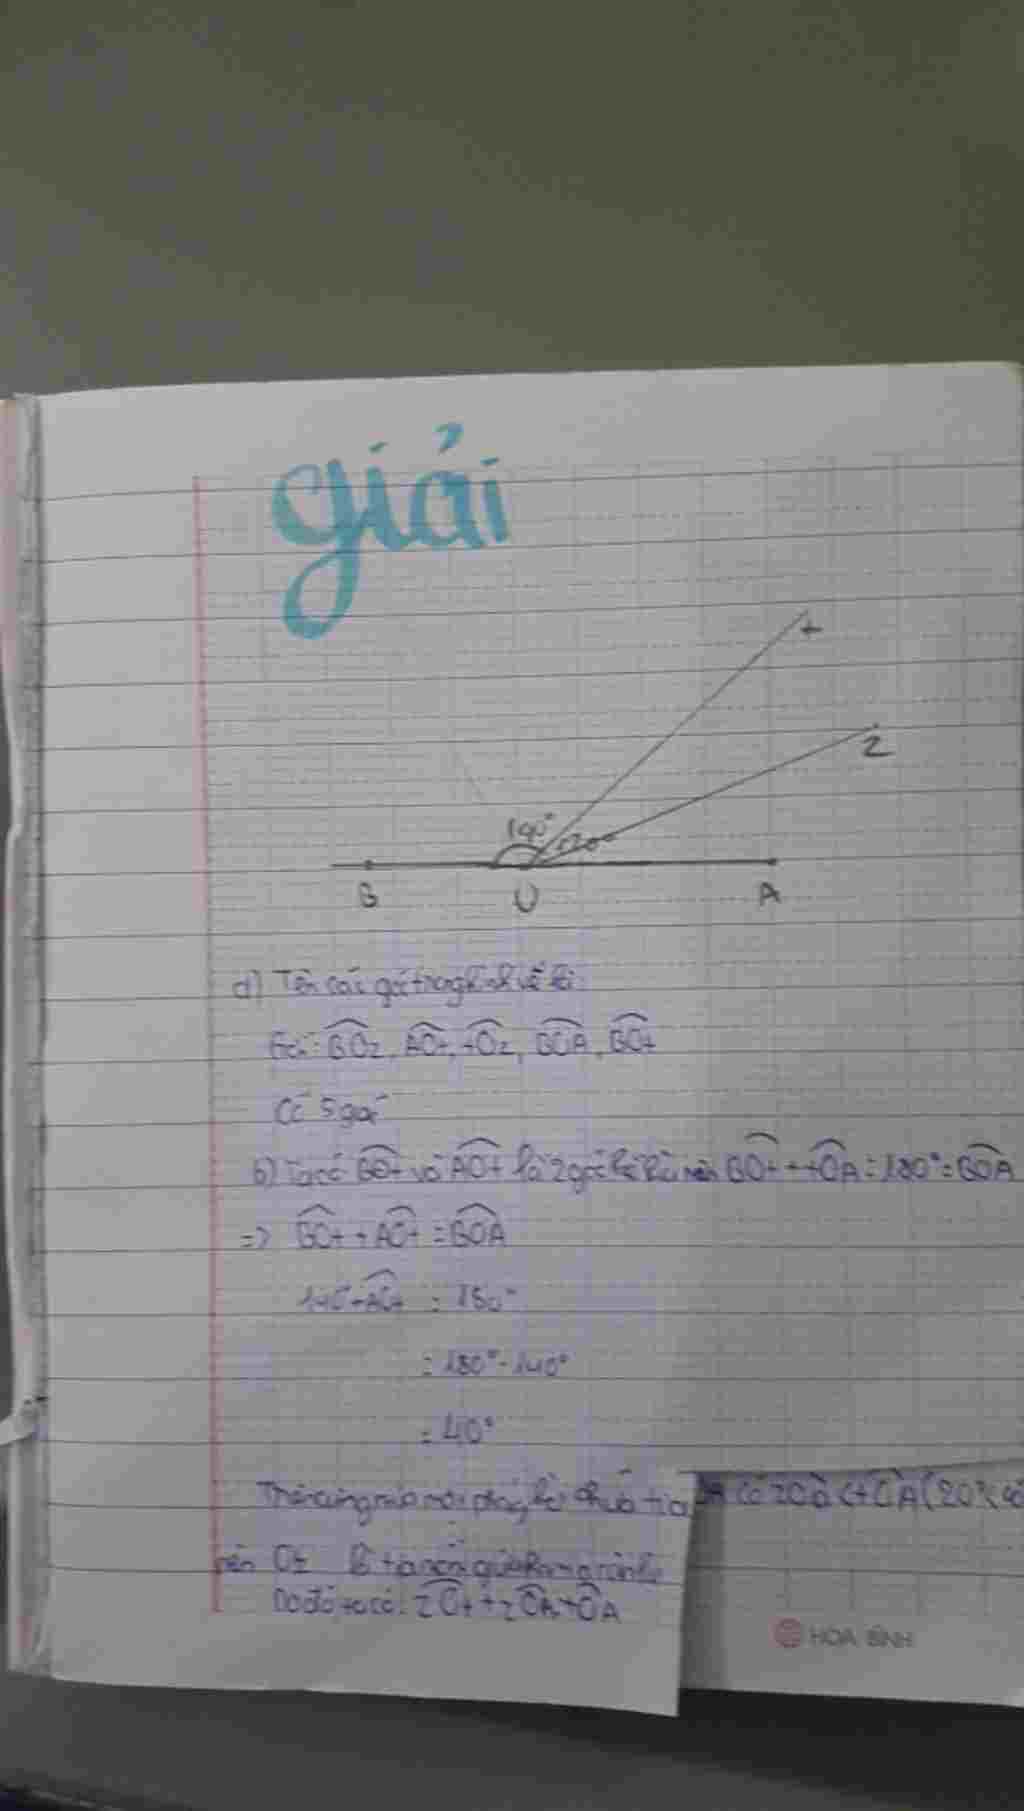 giải
t
z
140°
20°
B O A
a) Tên các góc trong hình vẽ là:
Góc: BOz, AOt, tOz, BOA, BOt
Có 5 góc
b) Ta có BOt và AOt là 2 góc kề bù nên BOt + tOA = 180° = BOA
=> BOt + AOt = BOA
140 + AOt = 180°
= 180° - 140°
= 40°
Trên cùng nửa mặt phẳng bờ chứa tia OA có zOA < tOA (20°<
nên Oz là tia nằm giữa
Do đó ta có: zOt + zOA = tOA
HOA BINH